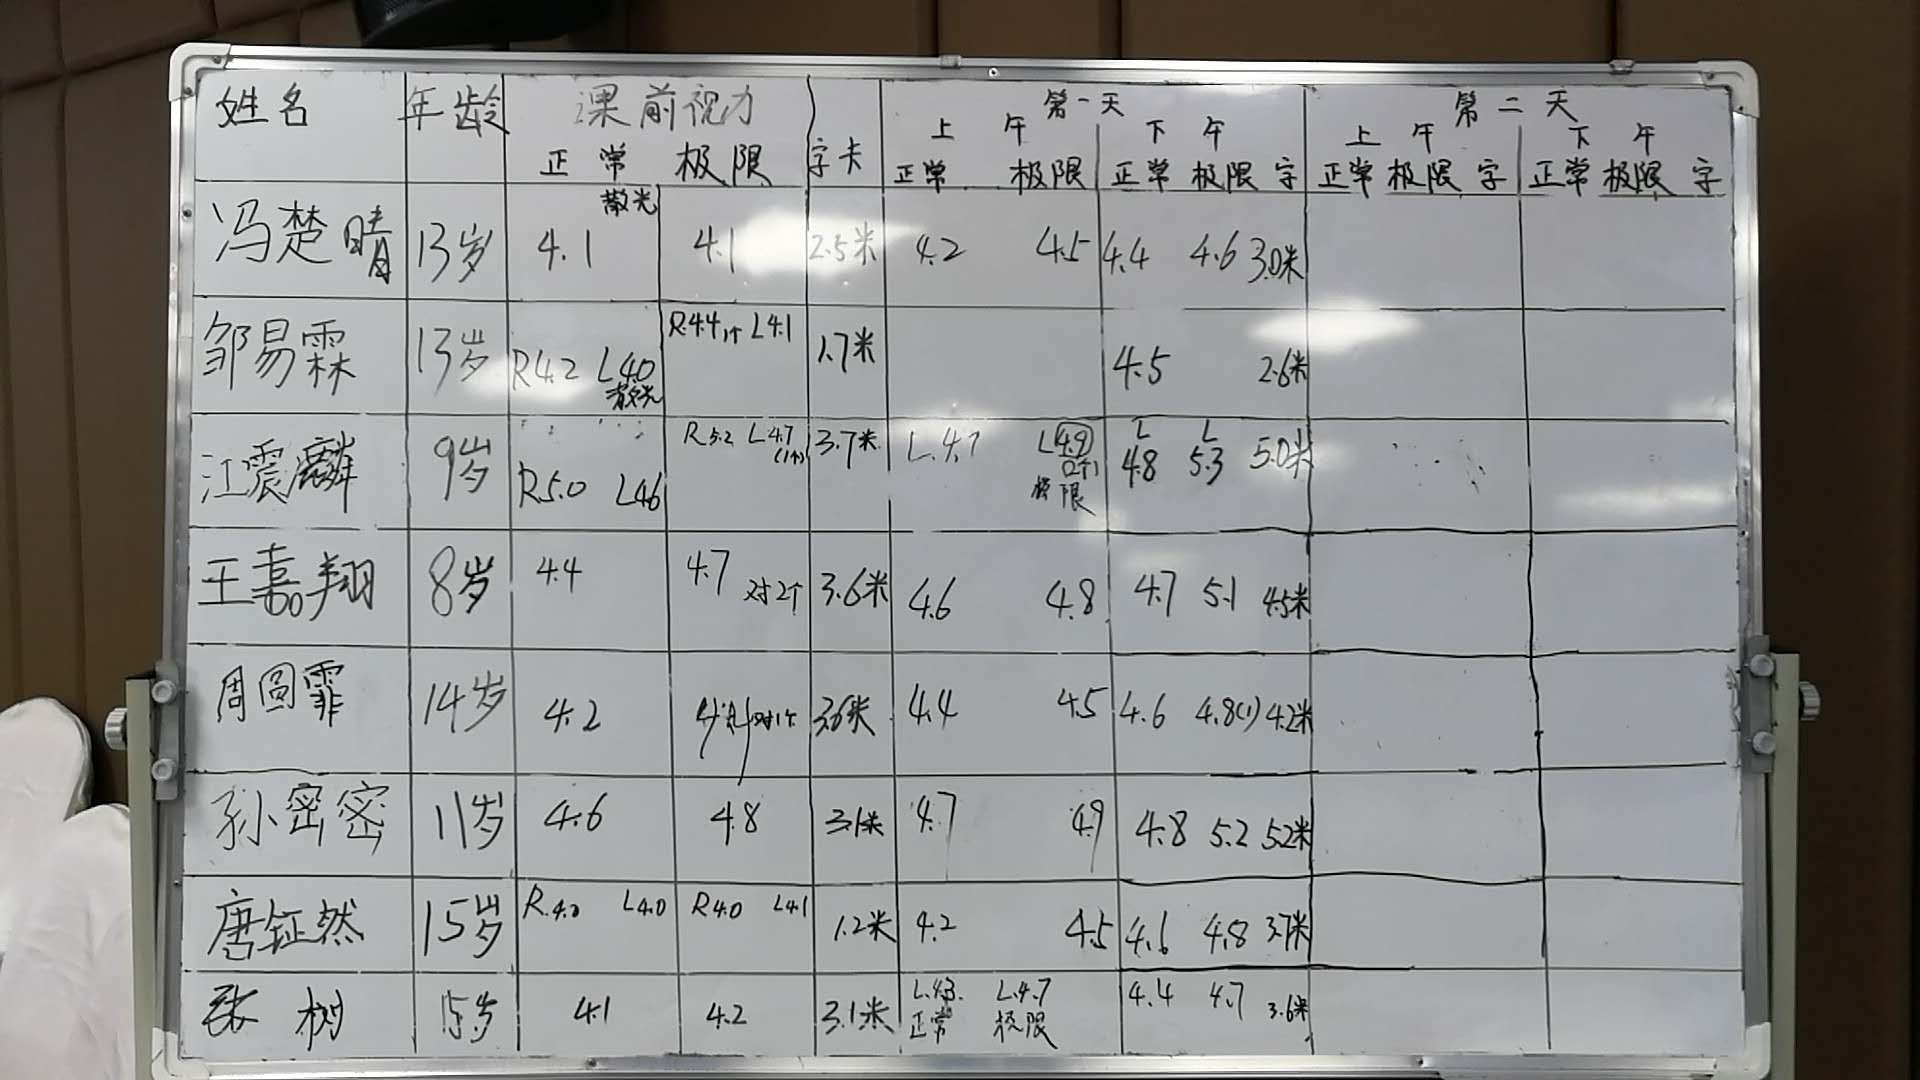 姓名 年龄 课前视力 字卡 第一天 第二天
上午 下午 上午 下午
正常 极限 正常 极限 正常 极限 字 正常 极限 字 正常 极限 字
散光
冯楚晴 13岁 4.1 4.1 2.5米 4.2 4.5 4.4 4.6 3.0米
R4.4 1个 L4.1
邹易霖 13岁 R4.2 L4.0 1.7米 4.5 2.6米
散光
R5.2 L4.7 3.7米 L4.7 L4.9 L L
(1个) 4.8 5.3 5.0米
江震麟 9岁 R5.0 L4.6 极限
王嘉翔 8岁 4.4 4.7 对2个 3.6米 4.6 4.8 4.7 5.1 4.5米
周圆霏 14岁 4.2 对1个 3.6米 4.4 4.5 4.6 4.8(1) 4.2米
孙密密 11岁 4.6 4.8 3.1米 4.7 4.9 4.8 5.2 5.2米
R4.0 L4.0 R4.0 L4.1
唐钲然 15岁 1.2米 4.2 4.5 4.6 4.8 3.7米
张树 15岁 4.1 4.2 3.1米 L4.3. L4.7 4.4 4.7 3.6米
正常 极限